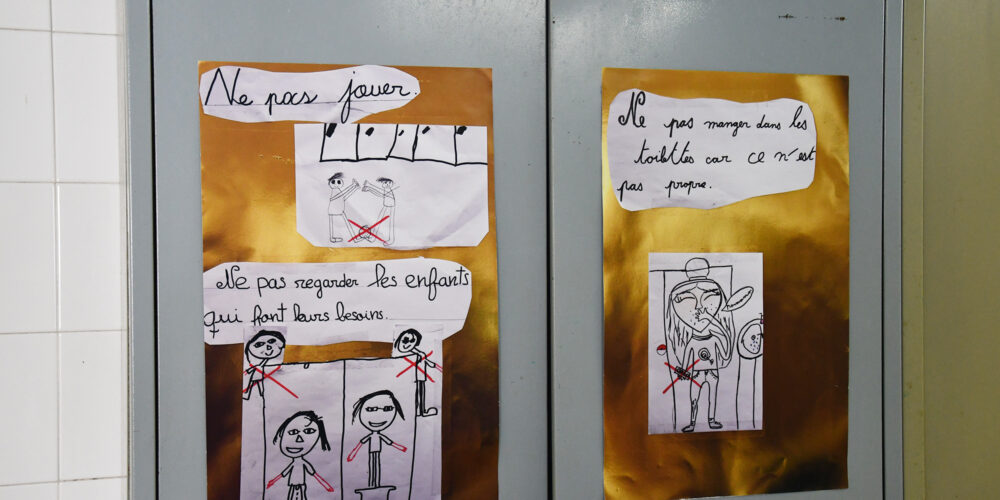 Ne pas jouer.
Ne pas regarder les enfants
qui font leurs besoins.
Ne pas manger dans les
toilettes car ce n'est
pas propre.